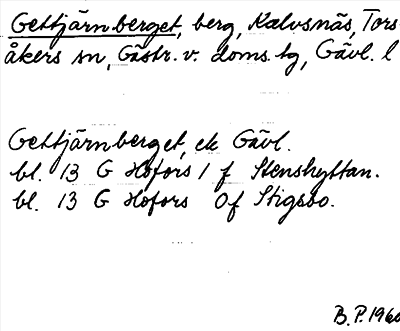 Gettjärnberget, berg, Kalvsnäs, Tors
åkers sn, Gästr. v. doms. tg, Gävl. l
Gettjärnberget, ek Gävl.
bl. 13 G Hofors 1 f Stenshyttan.
bl. 13 G Hofors 0f Stigsbo.
B.P. 1960